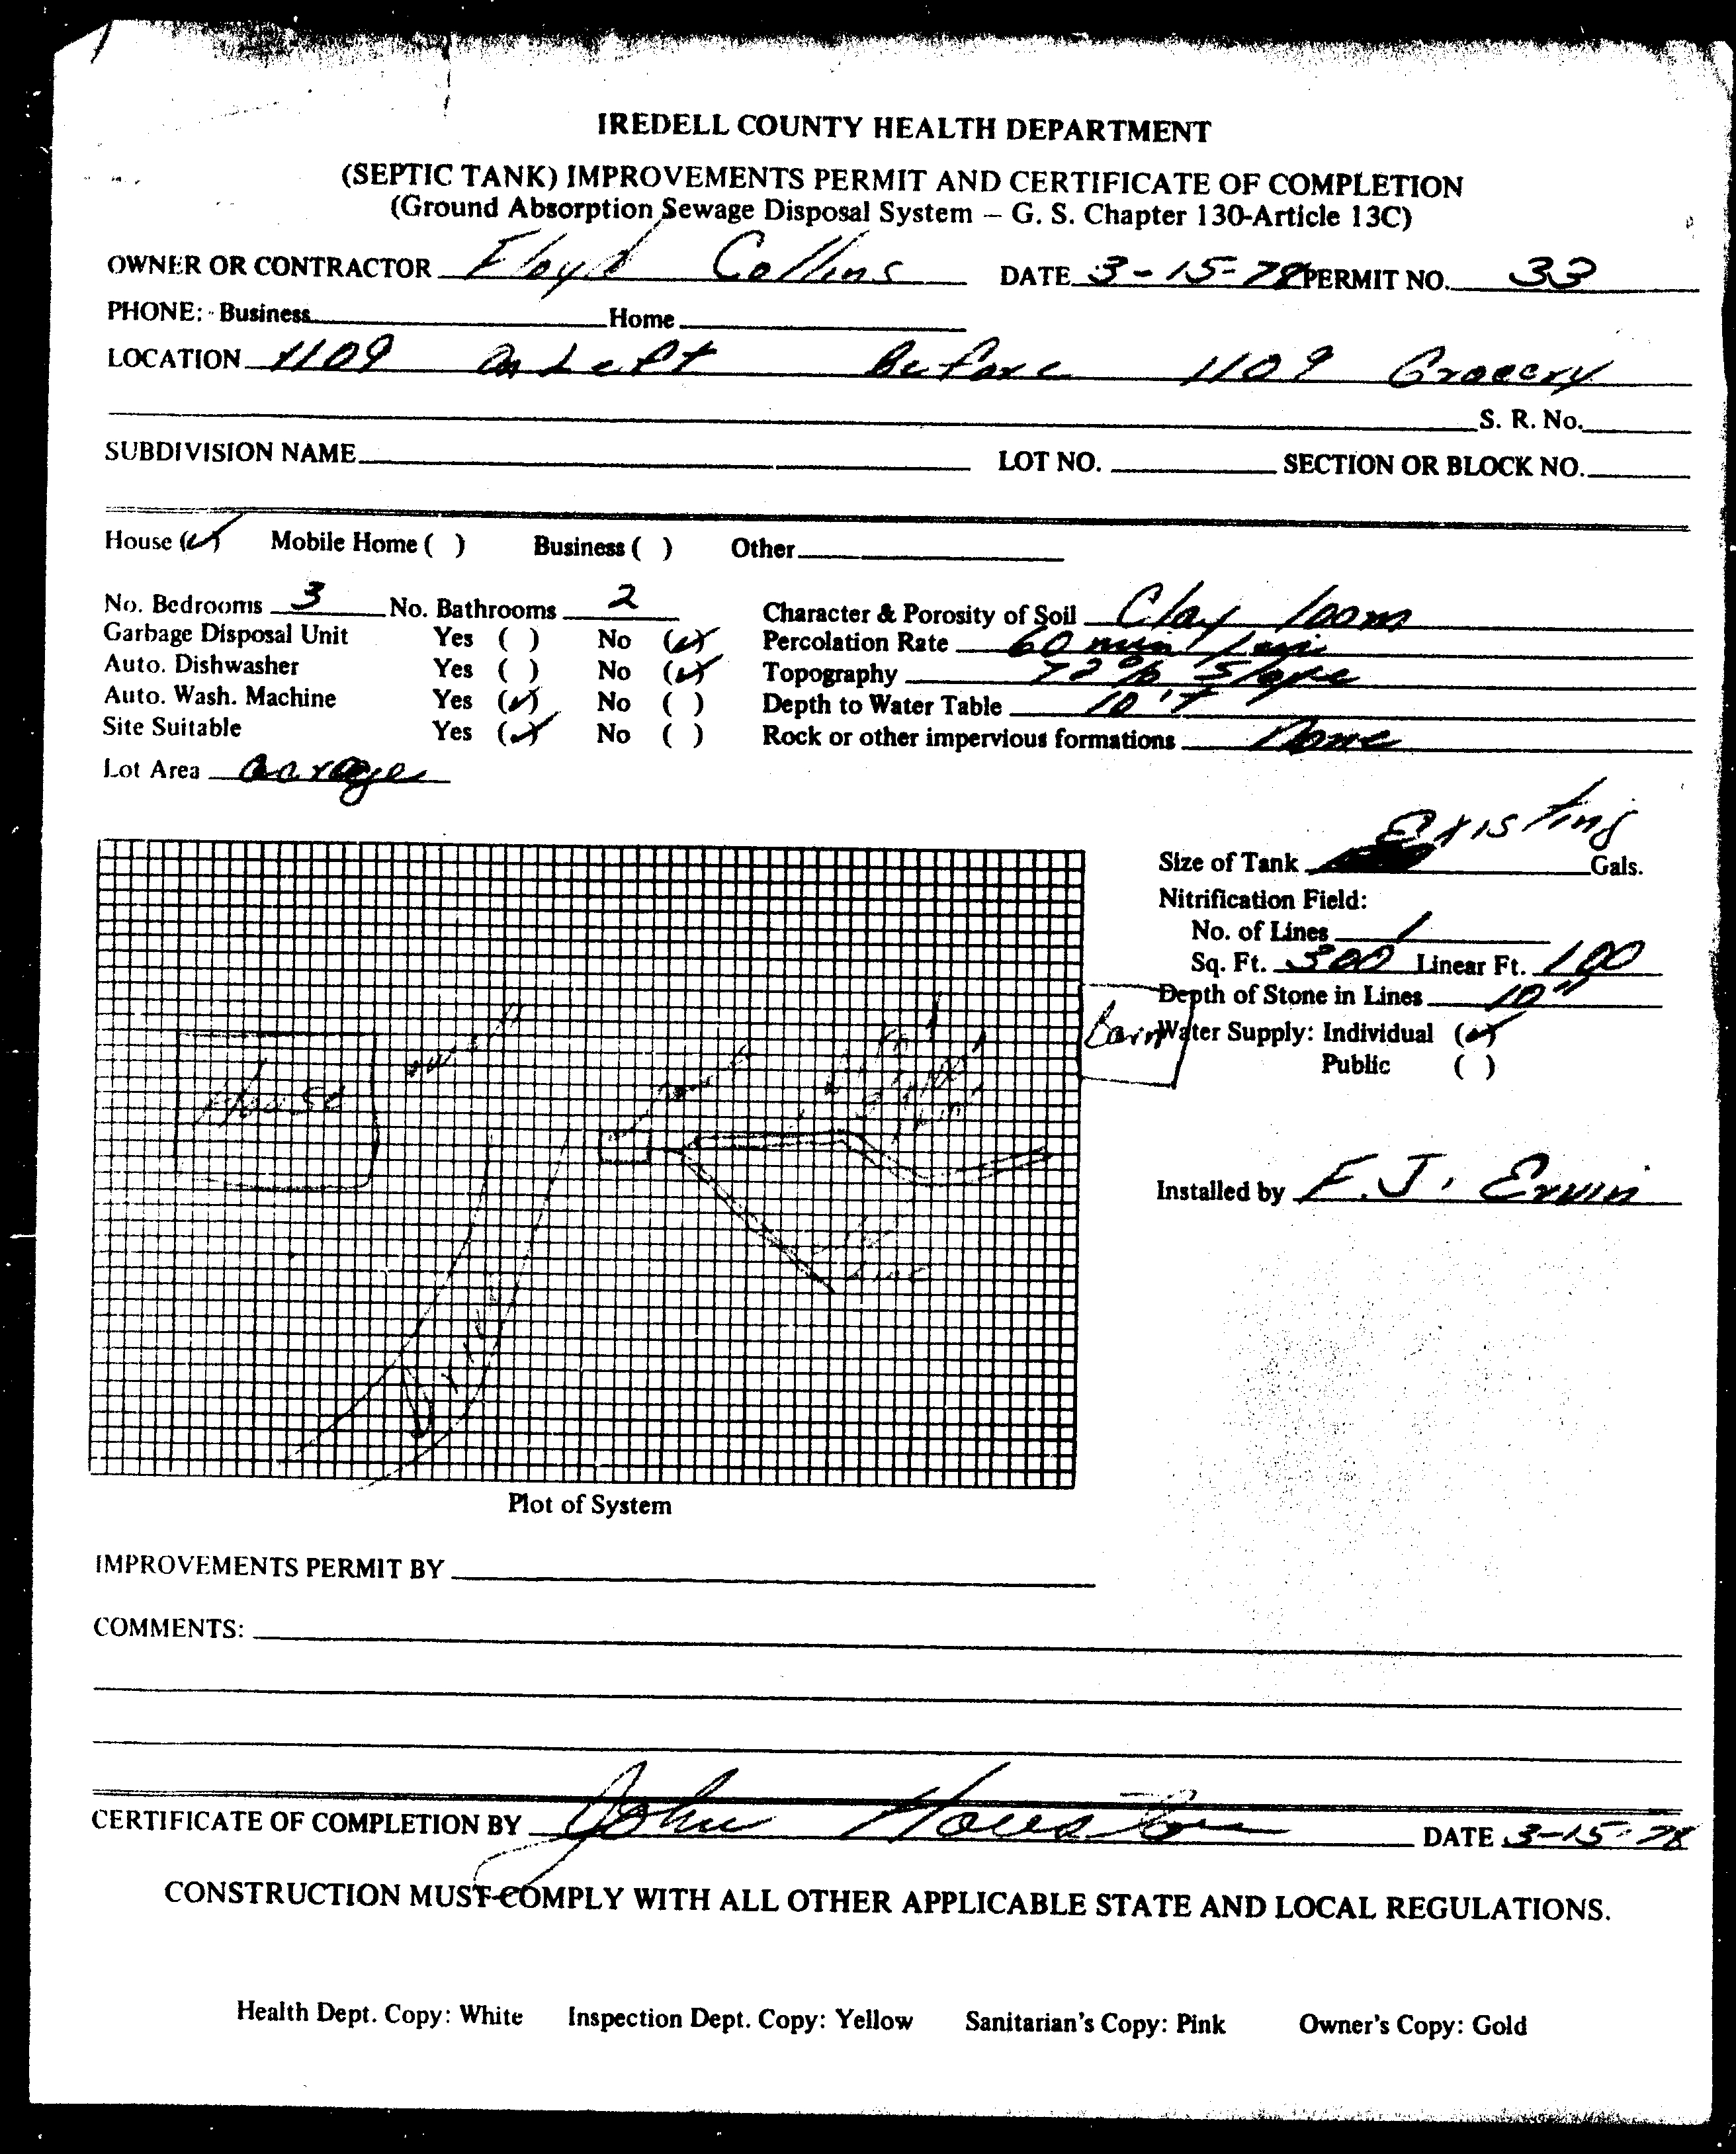 IREDELL COUNTY HEALTH DEPARTMENT
(SEPTIC TANK) IMPROVEMENTS PERMIT AND CERTIFICATE OF COMPLETION
(Ground Absorption Sewage Disposal System – G. S. Chapter 130-Article 13C)
OWNER OR CONTRACTOR Floyd Collins DATE 3-15-78 PERMIT NO. 33
PHONE: Business Home
LOCATION 1109 on Left Before 1109 Grocery
S. R. No.
SUBDIVISION NAME LOT NO. SECTION OR BLOCK NO.
House (✓) Mobile Home ( ) Business ( ) Other
No. Bedrooms 3 No. Bathrooms 2 Character & Porosity of Soil Clay loom
Garbage Disposal Unit Yes ( ) No (✓) Percolation Rate 60 min/
Auto. Dishwasher Yes ( ) No (✓) Topography % Slope
Auto. Wash. Machine Yes (✓) No ( ) Depth to Water Table 10'
Site Suitable Yes (✓) No ( ) Rock or other impervious formations None
Lot Area Acrage
Existing
Size of Tank Gals.
Nitrification Field:
No. of Lines 1
Sq. Ft. 300 Linear Ft. 100
Depth of Stone in Lines 10"
Barn
Water Supply: Individual (✓)
Public ( )
House
Installed by F.J. Ervin
Plot of System
IMPROVEMENTS PERMIT BY
COMMENTS:
CERTIFICATE OF COMPLETION BY John Houston DATE 3-15-78
CONSTRUCTION MUST COMPLY WITH ALL OTHER APPLICABLE STATE AND LOCAL REGULATIONS.
Health Dept. Copy: White Inspection Dept. Copy: Yellow Sanitarian's Copy: Pink Owner's Copy: Gold